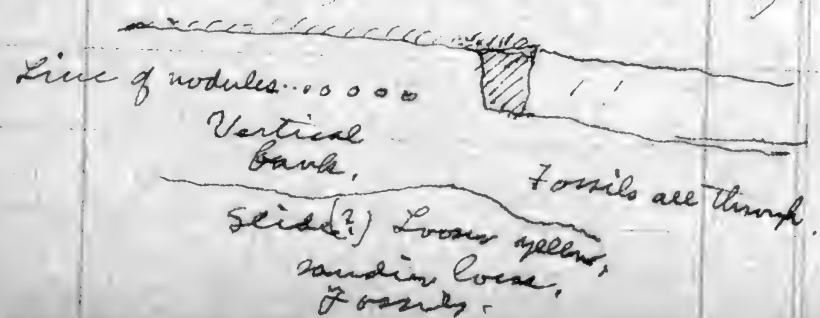 Line of nodules...
Vertical
bank.
Fossils all through.
Slide (?) Looser yellow,
sandier loess.
Fossils.